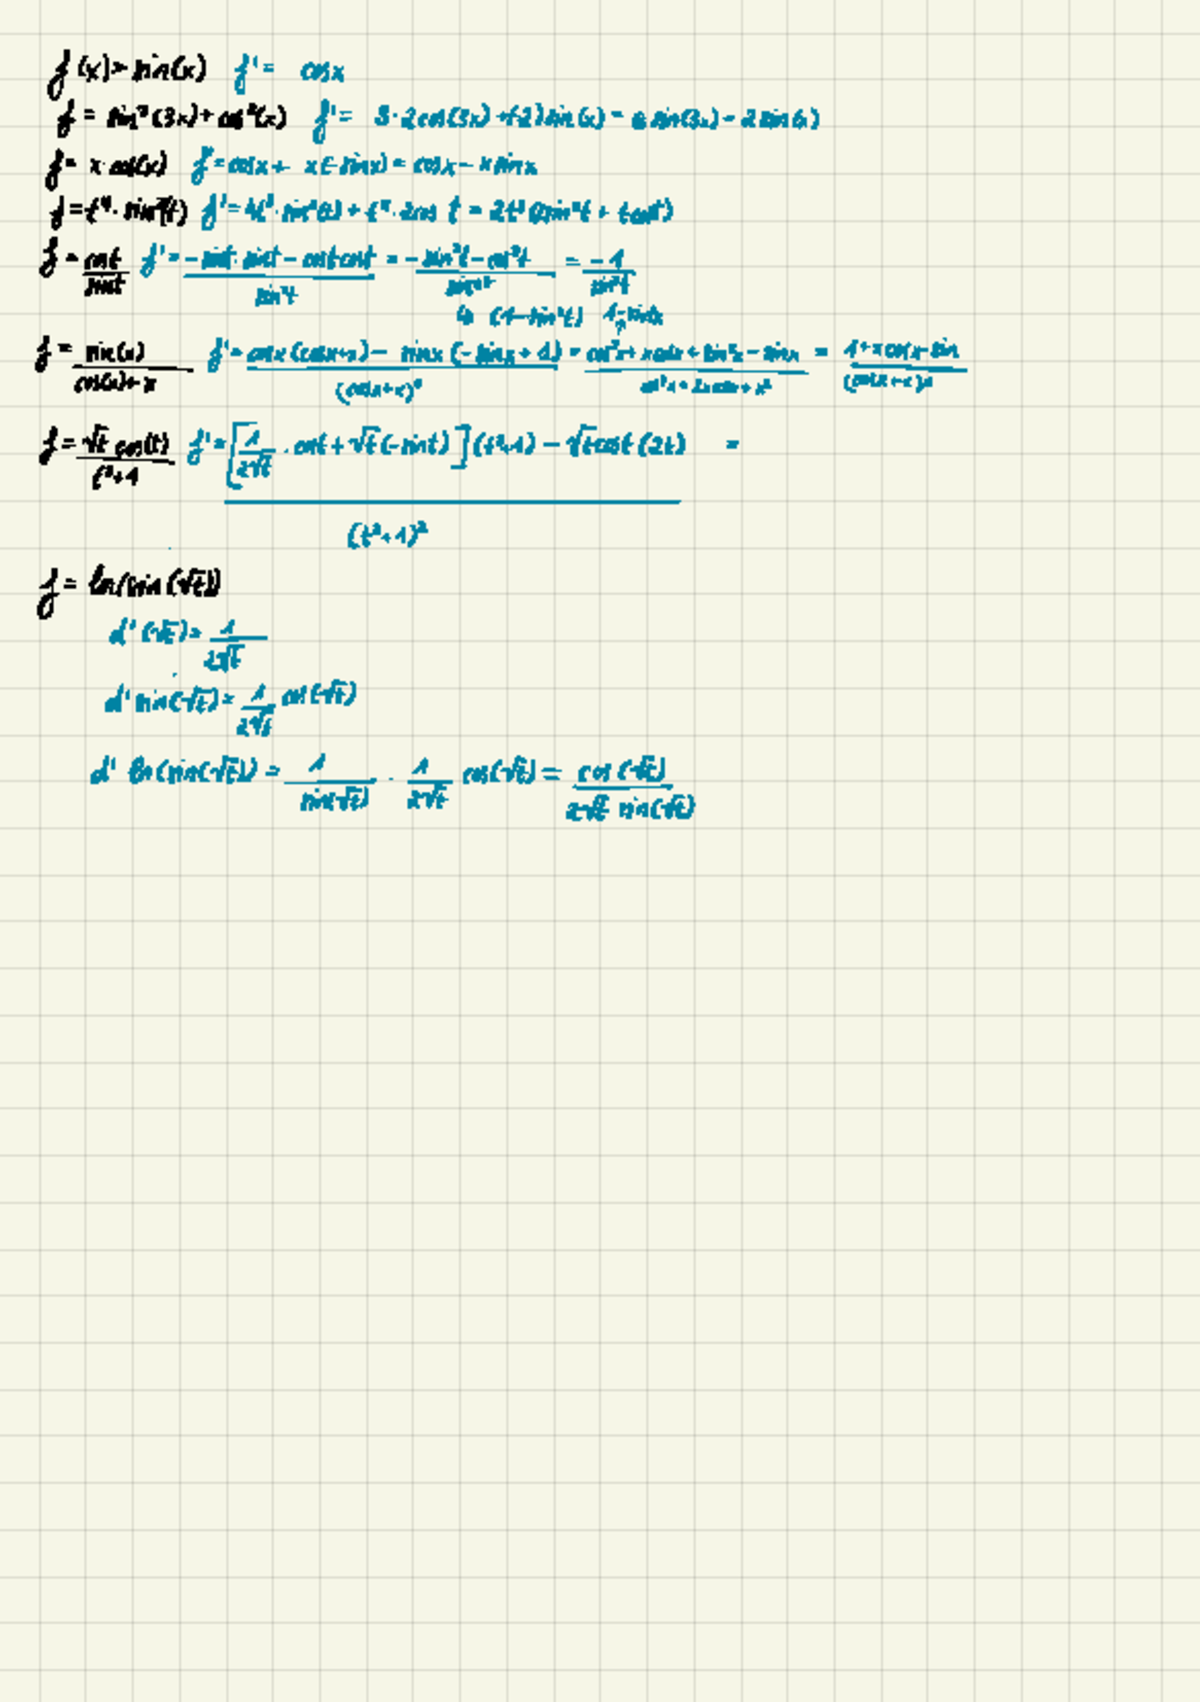 f(x) = sin(x) f' = cosx
f = sin²(3x) + cos²(x) f' = 3·2cos(3x) + (-2)sin(x) = 6 sin(3x) - 2 sin(x)
f = x·cos(x) f' = cosx + x(-sinx) = cosx - x sinx
f = t⁴·sin²(t) f' = 4t³·sin²(t) + t⁴·2cos t = 2t³(2sin²t + tcost)
f = cost/sint f' = (-sint·sint - cost cost)/sin²t = (-sin²t - cos²t)/sin²t = -1/sin²t
↳ (1-sin²t)
f = sin(x)/(cos(x)+x) f' = (cosx(cosx+x) - sinx(-sinx+1))/(cosx+x)² = (cos²x + xcosx + sin²x - sinx)/(cos²x + 2xcosx + x²) = (1+xcosx-sin)/(cosx+x)²
f = √t cos(t)/(t²+1) f' = ([1/(2√t)·cost + √t(-sint)](t²+1) - √t cost(2t))/(t²+1)² =
f = ln(sin(√t))
d'(√t) = 1/(2√t)
d' sin(√t) = 1/(2√t) cos(√t)
d' ln(sin(√t)) = 1/sin(√t) · 1/(2√t) cos(√t) = cos(√t)/(2√t sin(√t))